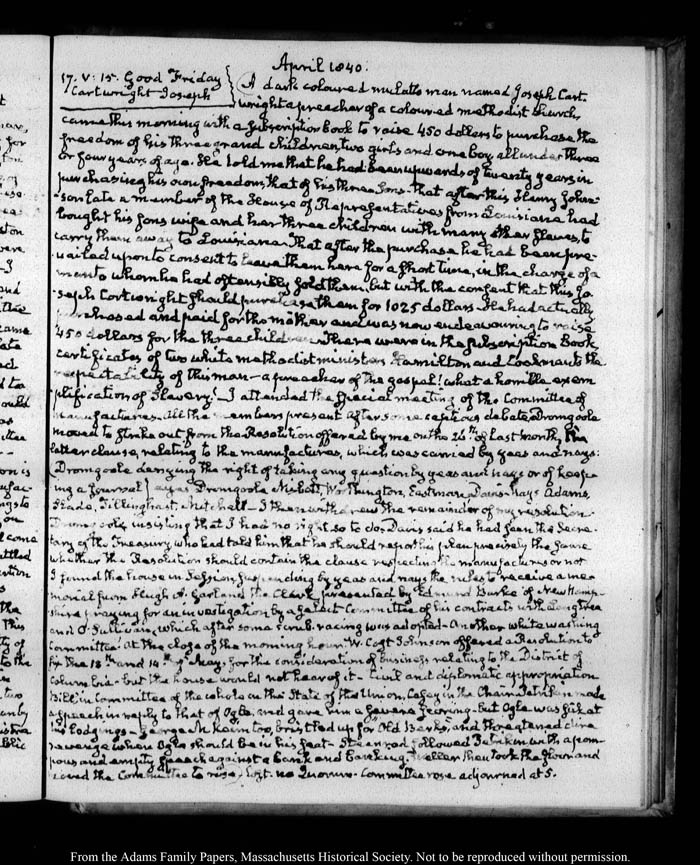 April 1840.
17. V: 15. Good Friday
Cartwright Joseph
A dark coloured mulatto man named Joseph Cart-
wright a preacher of a coloured methodist Church,
came this morning with a subscription book to raise 450 dollars to purchase the
freedom of his three grand children, two girls and one boy all under three
or four years of age. He told me that he had been upwards of twenty years in
purchasing his own freedom, that of his three Sons - that after this Henry John-
-son late a member of the House of Representatives from Louisiana had
bought his sons wife and her three children with many other Slaves, to
carry them away to Louisiana. That after the purchase he had been pre-
-vailed upon to consent to leave them here for a short time, in the charge of a
man to whom he had ostensibly sold them, but with the consent that this Jo-
seph Cartwright should purchase them for 1025 dollars. He had actually
purchased and paid for the mother and was now endeavouring to raise
450 dollars for the three children. There were in the subscription Book
certificates of two white methodist ministers Hamilton and Cookman to the
respectability of this man - a preacher of the gospel! what a horrible exem-
plification of Slavery! - I attended the special meeting of the Committee of
manufactures. All the members present after some captious debate, Dromgoole
moved to strike out from the Resolution offered by me on the 26th of last month, the
latter clause, relating to the manufactures, which was carried by yeas and nays:
(Dromgoole denying the right of taking any question by yeas and nays or of keep-
ing a Journal) ayes Dromgoole Nisbett, Worthington, Eastman Davis - nays Adams,
Slade, Tillinghast, Mitchell - I then withdrew the remainder of my resolution
Dromgoole insisting that I had no right so to do, Davis said he had seen the Secre-
tary of the Treasury who had told him that he should report his plan precisely the same
whether the Resolution should contain the clause respecting the manufactures or not
I found the house in Session, suspending by yeas and nays the rules to receive a me-
morial from Hugh A. Garland the Clerk presented by Edmund Burke of New Hamp-
shire praying for an investigation by a select Committee of his contracts with Langtree
and O'Sullivan, which after some scrub racing was adopted - Another white washing
Committee. At the close of the morning hour. W. Cost Johnson offered a Resolution to
fix the 13th and 14th of May, for the consideration of business relating to the District of
Columbia - but the house would not hear of it - Civil and diplomatic appropriation
Bill in Committee of the whole on the State of the Union. Casey in the Chair. Petriken made
a speech in reply to that of Ogle, and gave him a severe scoring - but Ogle was sick at
his lodgings - George M Keim too, bristled up for Old Berks, and threatened dire
revenge when Ogle should be in his seat - Steenrod followed Petriken with a pom-
pous and empty speech against a bank and banking. Weller then took the floor and
moved the Committee to rise, Lost. no Quorum - Committee rose adjourned at 5.
From the Adams Family Papers, Massachusetts Historical Society. Not to be reproduced without permission.